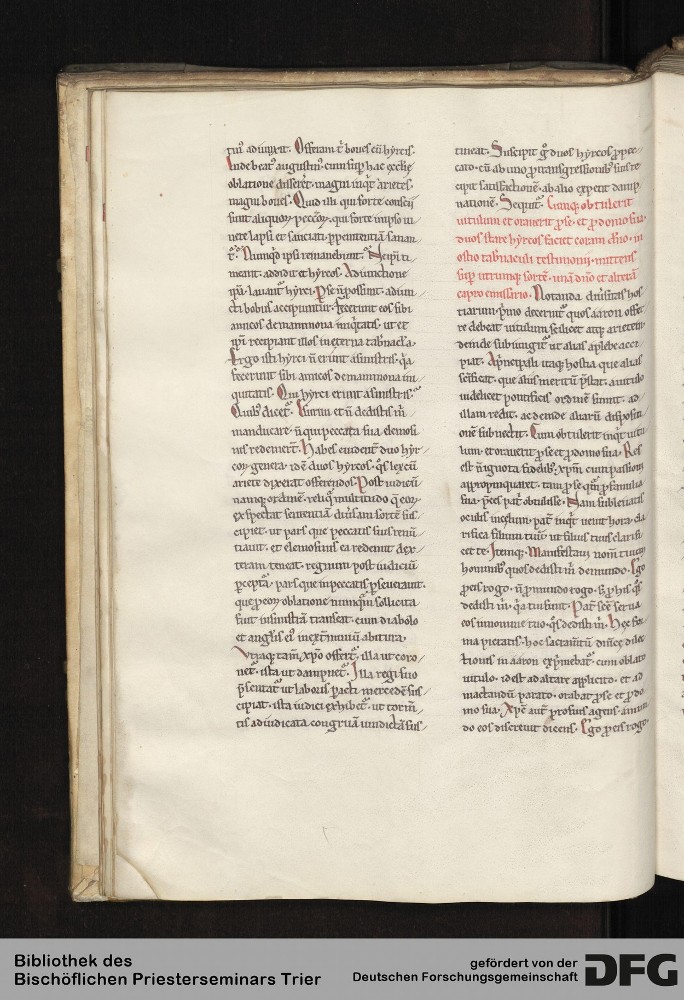 tin᷒ adiuṇxit. Offeram t̄ boues cū hyrcis.
Inde beat᷒ augustin᷒. cum sup̱ hac ecclię
oblatione dissereret. magni inqͥt arietes.
magni boues. Quid illi qui forte conscii
sunt aliquoꝝ pecc̄oꝝ. qui forte in ipso iu-
nere lapsi et sauciati. p̱ penitentiā sanan-
t᷒. Nunqͥd ipsi remanebunt.
meant. addidit et hyrcos. Adiunctione
ipsi recipiant illos in eterna tab̄nac̄la.
Ergo isti hyrci n̄ erunt a sinistris. qͥa
fecerunt sibi amicos de mammona ini-
quitatis. Qui hyrci erunt a sinistris.
Quib᷒ dicet᷒. Esuriui et n̄ dedistis m̄
manducare. n̄ qui peccata sua elemosi-
nis redemer̄t. Habes euident̄ duo hyr-
coꝝ genera. id ē duos hyrcos. qͦs lex cū
ariete dixerat offerendos. Post iudiciū
namqꝫ ordinē. reliqͣ multitudo q̄ eoꝝ
exspectat sententiā. diūsam sortē sus-
cipiet. ut pars que peccatis suis renū-
tiauit. et elemosinis ea redemit dex-
teram teneat. regnum post iudiciū
p̱cepta. pars que in peccatis p̱seuerauit.
que p̱ eoꝝ oblatione nunqͣm sollicita
fuit in sinistrā transeat. cum diabolo
et angl̄is ei᷒ in ext̄miniū abitura.
Vtraqꝫ tam̄ xp̄o offert᷒. illa ut coro-
net᷒. ista ut dampnet᷒. Illa regi suo
p̄sentat᷒ ut laboris p̱acti mercedē sus-
cipiat. ista iudici exhibet᷒. ut torm̄-
tis adiudicata. congruā uindictā sus-
tineat. Suscipit g̊ duos hyrcos p̱ pec-
cato. cū ab uno p̱ transgressionib᷒ suis re-
cipit satisfactionē. ab alio expetit damp-
nationē. Sequit᷒. Cumqꝫ obtulerit
uitulum et orauerit p̱ se. et p̱ domo sua.
duos stare hyrcos faciet coram dn̄o. in
ostio tab̄naculi testimonii. mittens
sup̱ utrumqꝫ sortē. unā dn̄o et alterā
capro emissario. Notanda diūsitas hos-
tiarum. p̱mo decernit᷒ quos aaron offer-
re debeat. uitulum scilicet atqꝫ arietem.
deinde subiungit᷒ ut alias a plebe acci-
piat. A p̱ncipali itaqꝫ hostia que alias
sc̄ificat. que aliis meritū p̄stat. a uitulo
uidelicet pontificis ordinē sumit. ad
illam redit. ac deinde aliarū dispositi-
onē subnectit. Cum obtulerit inqͥt uitu-
lum. et orauerit p̱ se et p̱ domo sua. Res
est n̄ ignota fidelib᷒. xp̄m cum passioni
appropinquaret. tam p̱ se qͣm p̱ familia
sua. p̄ces patͥ obtulisse. Nam subleuatis
oculis in celum. pat᷒ inqͥt uenit hora. cla-
rifica filium tuū. ut filius tuus clarifi-
cet te. Itemqꝫ. Manifestaui nom̄ tuum
hominib᷒ quos dedisti m̄ de mundo. Ego
p̱ eis rogo. n̄ p̱ mundo rogo. s꜒ p̱ his qͦs
dedisti m̄. qͥa tui sunt. Pat᷒ sc̄e serua
eos in nomine tuo. qͦs dedisti m̄. Hec for-
ma pietatis. hoc sacram̄tū diuīe dilec-
tionis in aaron exp̱mebat᷒. cum oblato
uitulo. id est ad altare applicito. et ad
mactandū parato. orabat p̱ se et p̱ do-
mo sua. Xp̄c aut̄ p̱ suis agens. a mun-
do eos discreuit dicens. Ego p̱ eis rogo.
Bibliothek des
Bischöflichen Priesterseminars Trier
gefördert von der
Deutschen Forschungsgemeinschaft
DFG